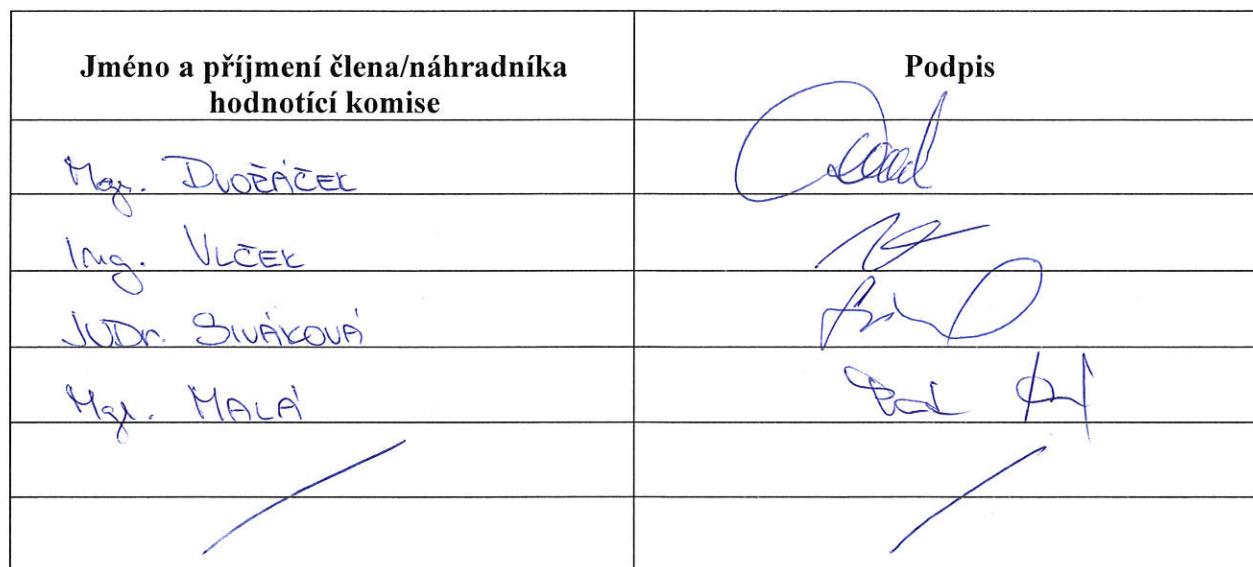 Jméno a příjmení člena/náhradníka
hodnotící komise
Podpis
Mgr. DVOŘÁČEK
Ing. VLČEK
JUDr. SIVÁKOVÁ
Mgr. MALÁ